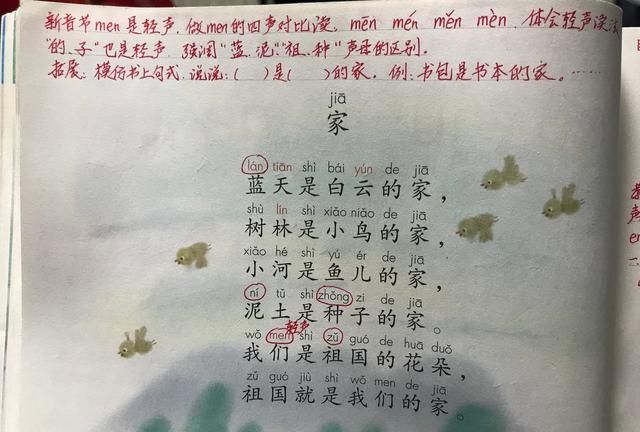 新音节men是轻声,做men的四声对比读,mēn mén měn mèn,体会轻声读法
"的、子"也是轻声 强调"蓝、泥""祖、种"声母的区别。
拓展:模仿书上句式,说说:( )是( )的家。例:书包是书本的家。……
jiā
家
lán tiān shì bái yún de jiā
蓝天是白云的家,
shù lín shì xiǎo niǎo de jiā
树林是小鸟的家,
xiǎo hé shì yú ér de jiā
小河是鱼儿的家,
ní tǔ shì zhǒng zi de jiā
泥土是种子的家。
轻声
wǒ men shì zǔ guó de huā duǒ
我们是祖国的花朵,
zǔ guó jiù shì wǒ men de jiā
祖国就是我们的家。